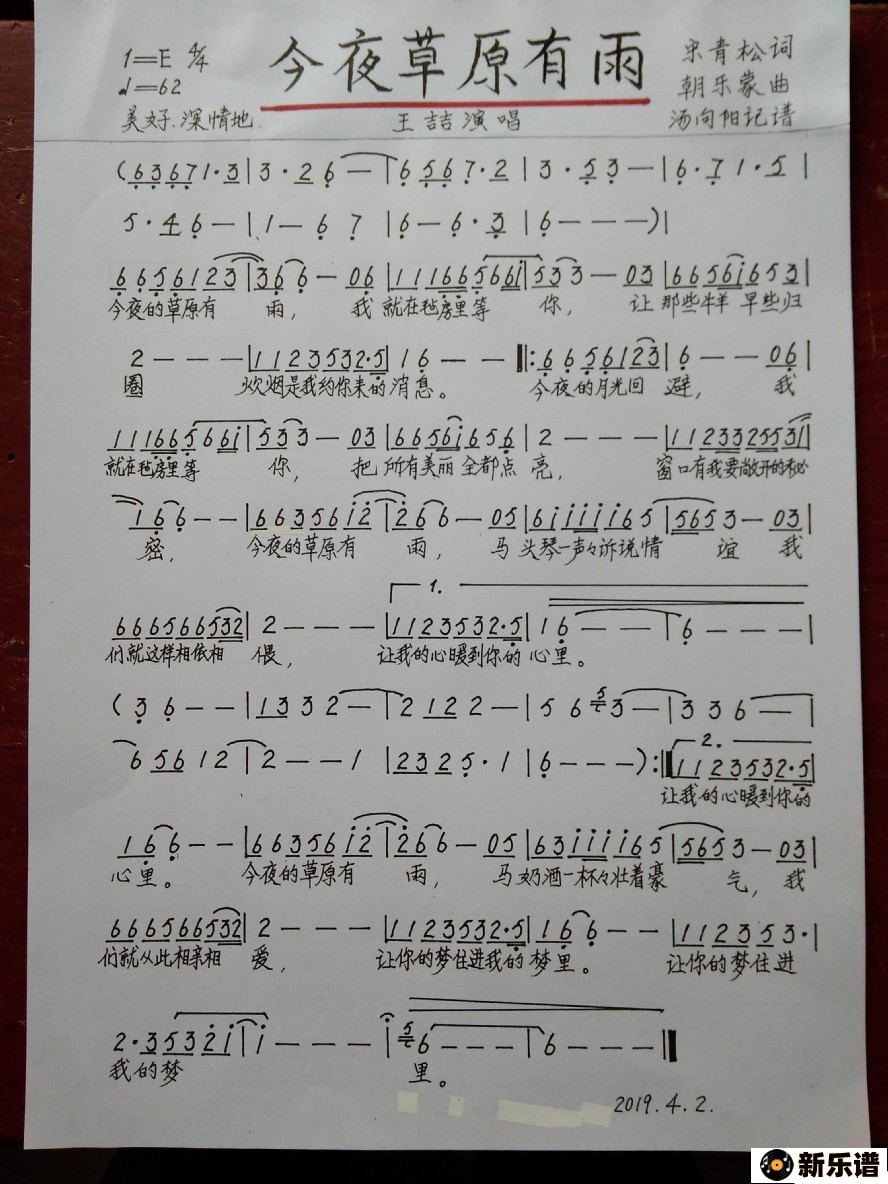 1=E 4/4 今夜草原有雨 宋青松词
♩=62 朝乐蒙曲
美好.深情地. 王喆演唱 汤向阳记谱
(6367 1·3 | 3·26— | 6567·2 | 3·53— | 6·71·5 |
5·46— | 1—67 | 6—6·3 | 6———) |
6656123 | 366—06 | 11166566i | 533—03 | 6656i653 |
今夜的草原有 雨, 我 就在毡房里等 你, 让 那些牛羊 早些归
2——— | 1123532·5 | 16—— ‖: 6656123 | 6——06 |
圈 炊烟是我约你来的 消息。 今夜的月光回 避, 我
11166566i | 533—03 | 6656i656 | 2——— | 1123325531 |
就在毡房里等 你, 把 所有美丽 全都点 亮, 窗口有我要敞开的秘
166—— | 66356i2 | 266—05 | 6iiiii65 | 5653—03 |
密, 今夜的草原有 雨, 马 头琴一声々诉说情 谊 我
1.
666566532 | 2——— | 1123532·5 | 16—— | 6——— |
们就这样相依相 偎, 让我的心暖到你的 心里。
(36—— | 1332— | 2122— | 563— | 336— |
65612 | 2——1 | 2325·1 | 6———) :‖ 1123532·5 |
2.
让我的心暖到你的
166—— | 66356i2 | 266—05 | 63iiii65 | 5653—03 |
心里。 今夜的草原有 雨, 马 奶酒一杯々壮着豪 气, 我
666566532 | 2——— | 1123532·5 | 166—— | 112353· |
们就从此相亲相 爱, 让你的梦住进我的 梦里。 让你的梦住进
2·3532i | i——— | i 56——— | 6——— ‖
我的梦 里。
2019.4.2.
新乐谱